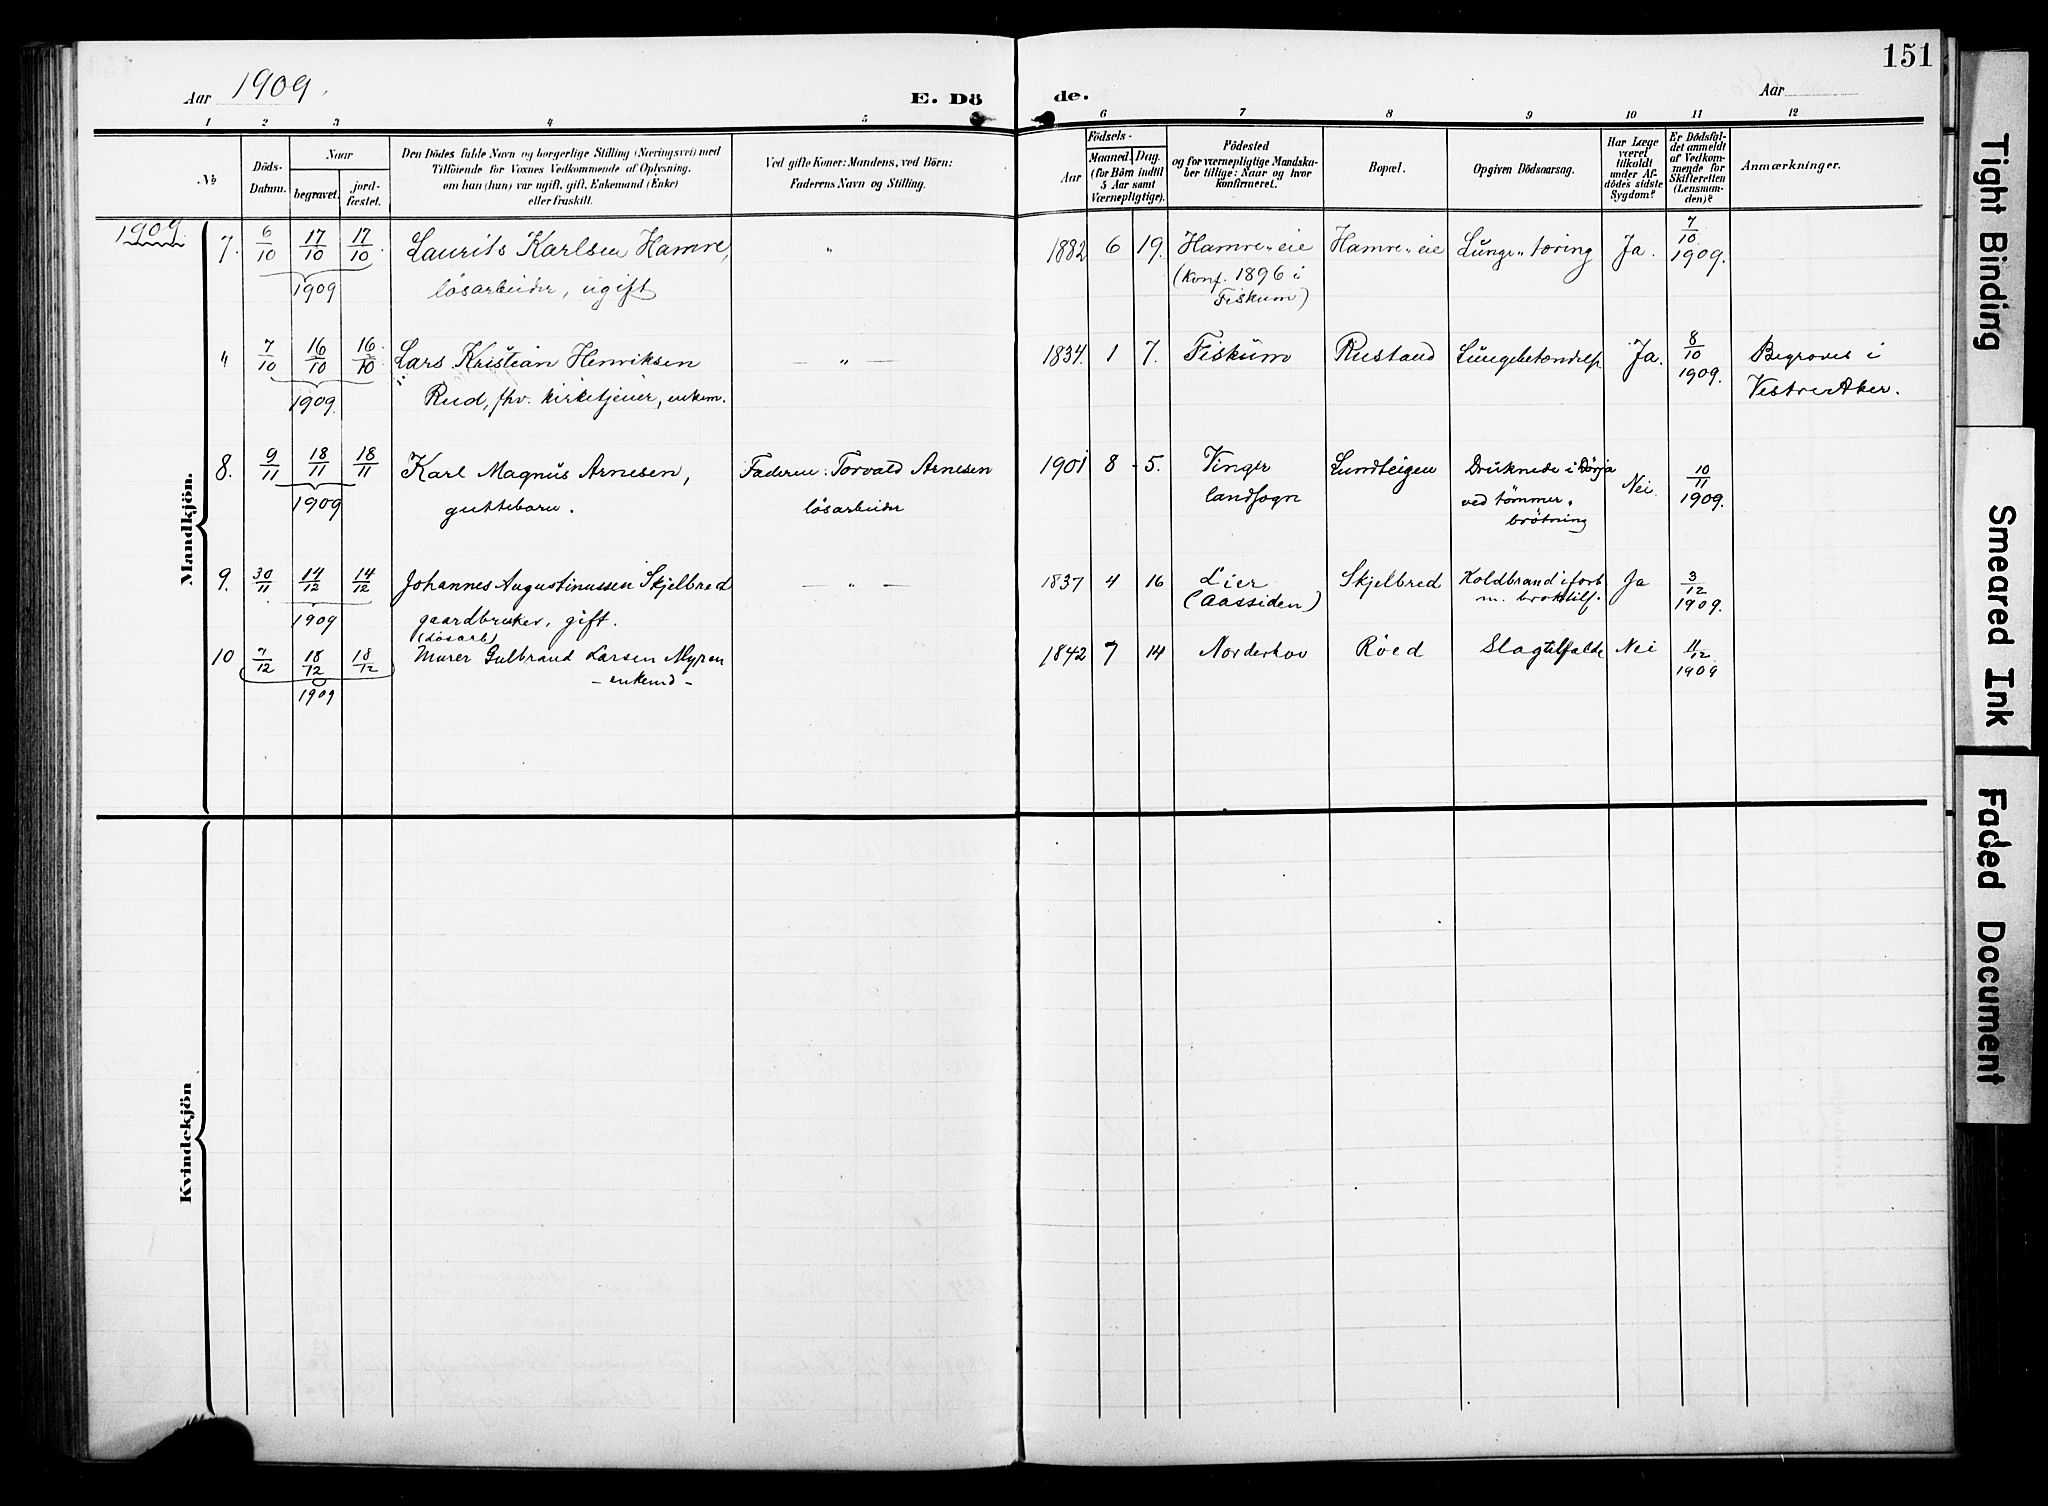 151
Aar 1909.
E. Döde.
Aar
1 2 3 4 5 6 7 8 9 10 11 12
№
Döds-Datum.
Naar
begravet.
jord-fæstet.
Den Dödes fulde Navn og borgerlige Stilling (Næringsvei) med
Tilföiende for Voxnes Vedkommende af Oplysning,
om han (hun) var ugift, gift, Enkemand (Enke)
eller fraskilt.
Ved gifte Koner: Mandens, ved Börn:
Faderens Navn og Stilling.
Födsels-
Aar
Maaned. Dag.
(for Börn indtil
5 Aar samt
Værnepligtige).
Födested
og for værnepligtige Mandska-
ber tillige: Naar og hvor
konfirmeret.
Bopæl.
Opgiven Dödsaarsag.
Har Læge
været
tilkaldt
under Af-
dödes sidste
Sygdom?
Er Dödsfal-
det anmeldt
af Vedkom-
mende for
Skifteretten
(Lensman-
den)?
Anmærkninger.
Mandkjön.
1909
7. 6/10 17/10 17/10 Laurits Karlsen Hamre, " 1882 6 19. Hamre-eie Hamre-eie Lunge-tæring Ja. 7/10
1909 løsarbeider, ugift (Konf. 1896 i 1909.
Fiskum)
" 7/10 16/10 16/10 Lars Kristian Henriksen — " — 1834. 1 7. Fiskum Rustand Lungebetændelse Ja. 8/10 Begraves i
1909. Rud, fhv. kirketjener, enkem. 1909. Vestre Aker.
8. 9/11 18/11 18/11 Karl Magnus Arnesen, Faderen: Torvald Arnesen 1901 8 5. Vinger Lundteigen Druknede i Dørja Nei. 10/11
1909 guttebarn. løsarbeider landsogn ved tømmer- 1909.
brøtning
9. 30/11 14/12 14/12 Johannes Augustinussen Skjelbred — " — 1837 4 16 Lier Skjelbred Koldbrand i forb. Ja 3/12
1909 gaardbruker, gift. (Aassiden) m. 1909.
(løsarb)
10 7/12 18/12 18/12 Murer Gulbrand Larsen Myren 1842 7 14 Norderhov Røed Slagtilfælde Nei 11/12
1909 - enkemd - 1909
Kvindekjön
Tight Binding
Smeared Ink
Faded Document